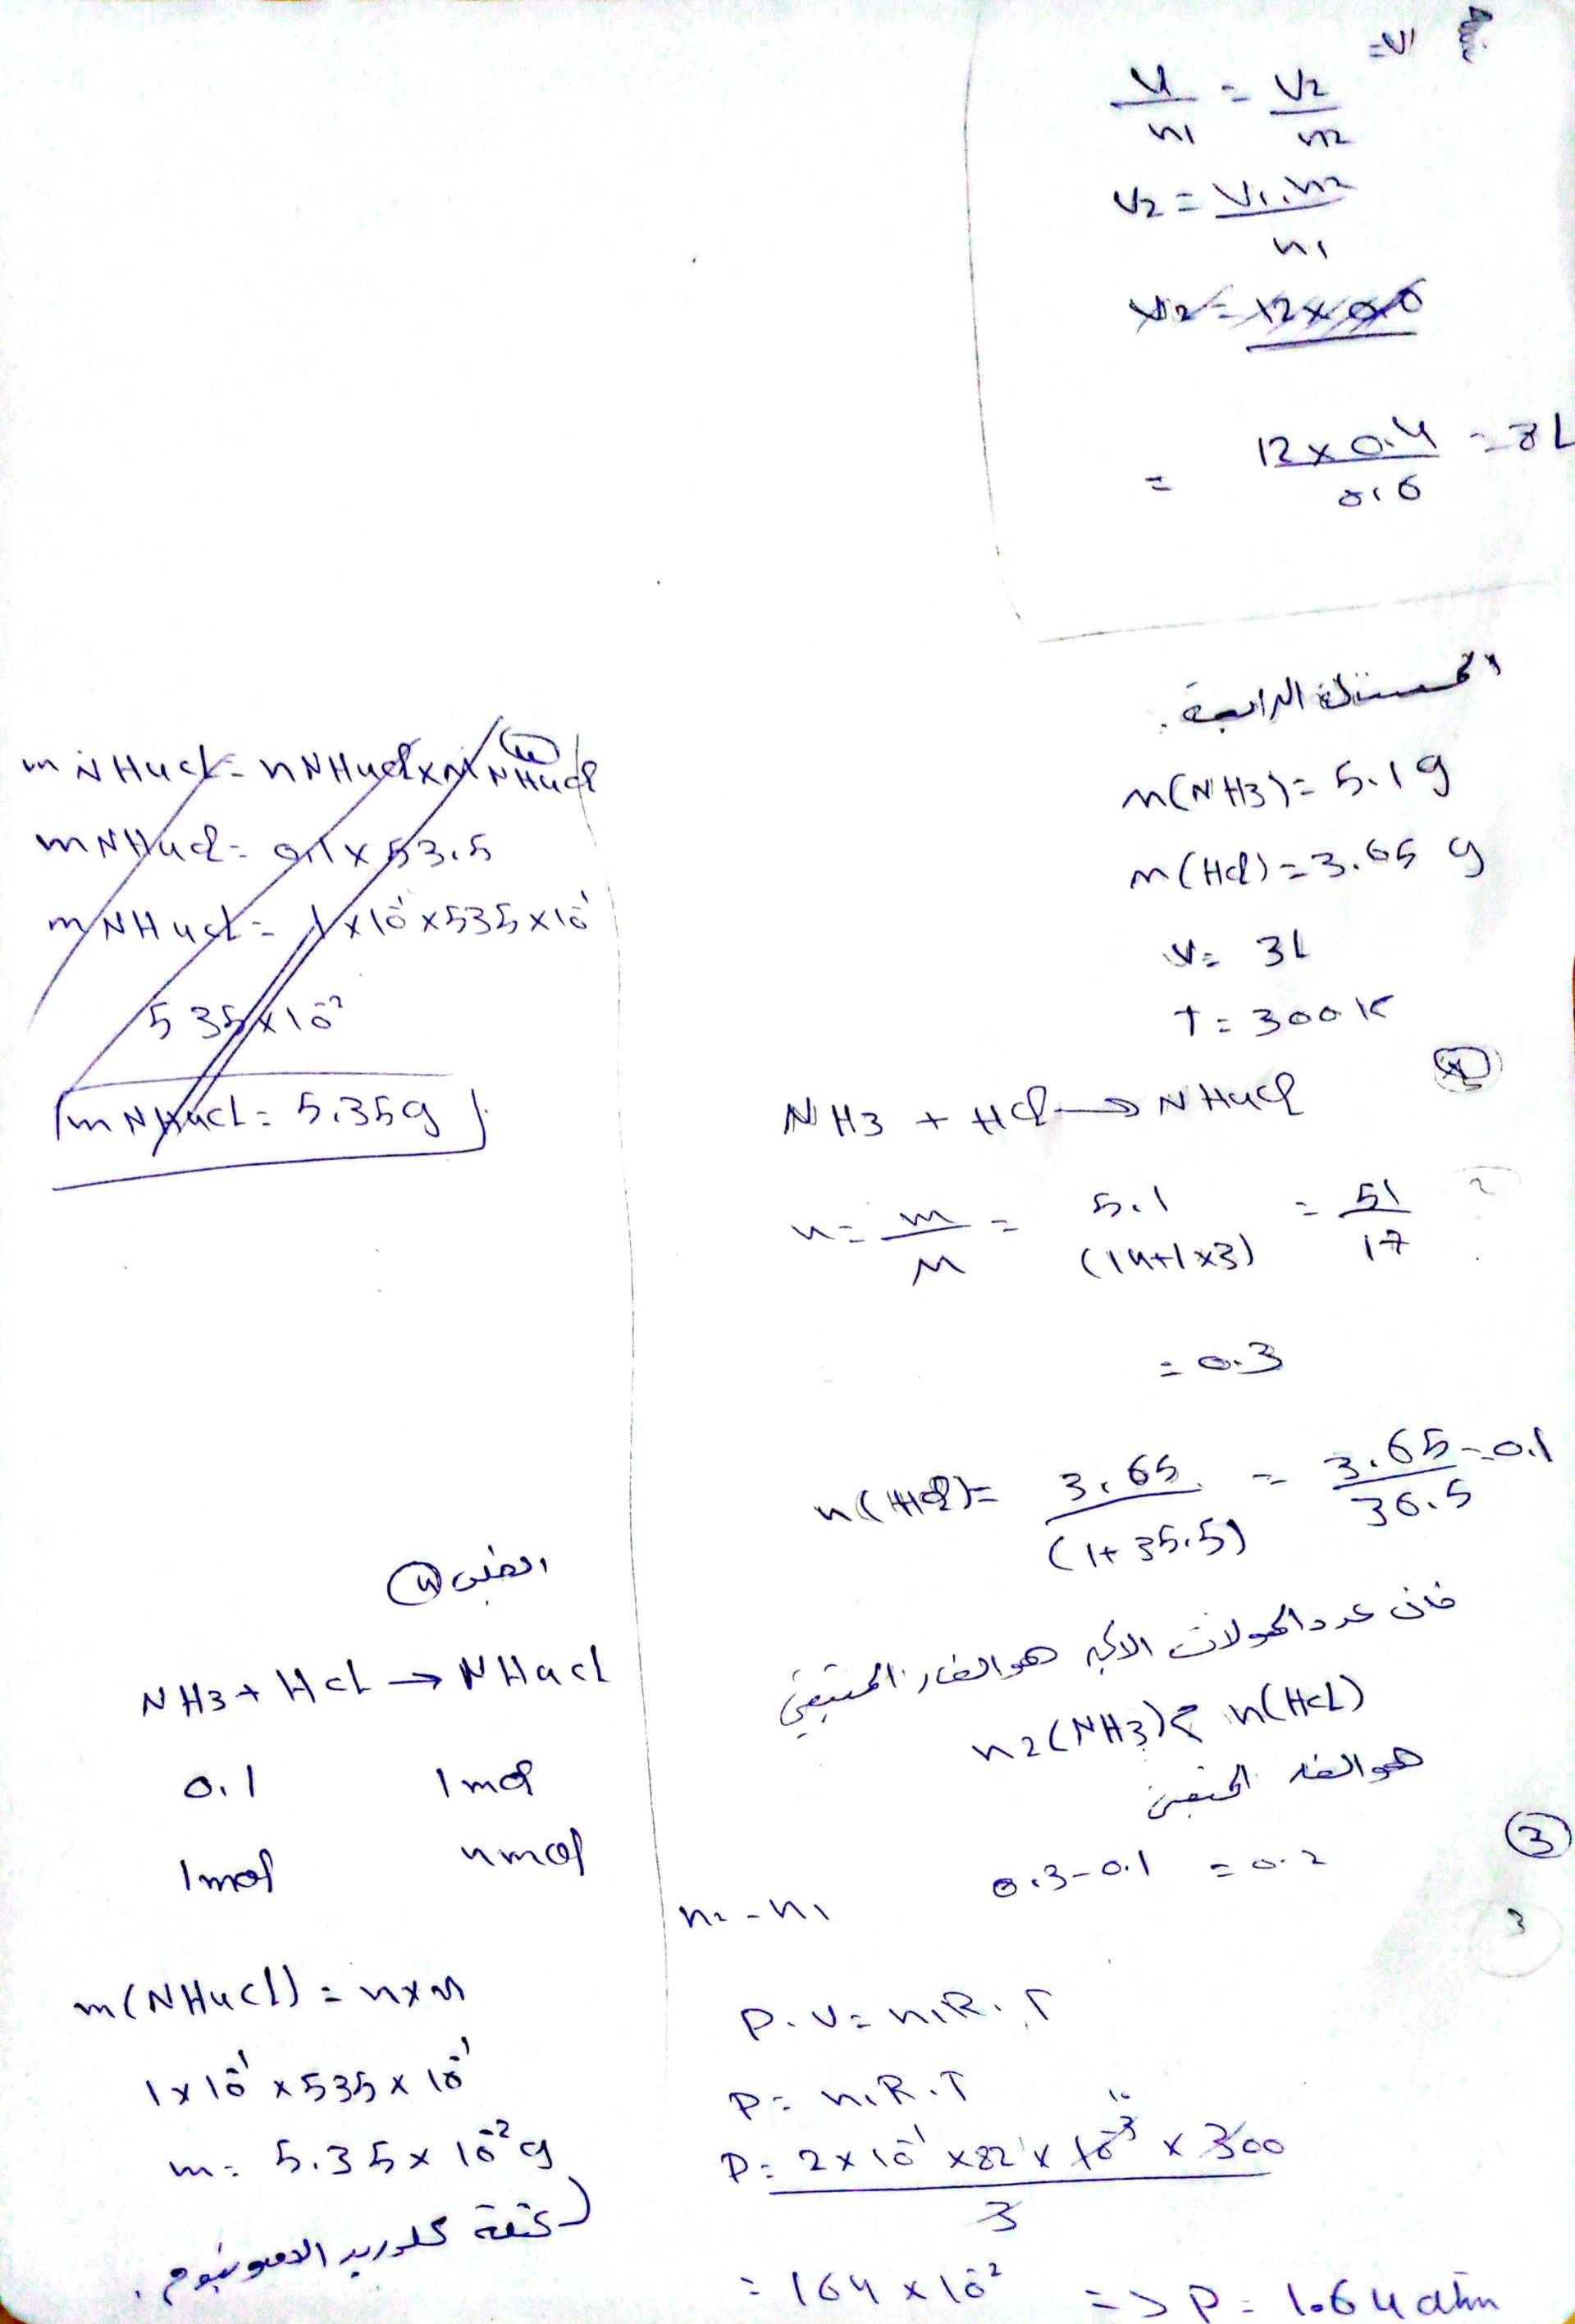 V1 =
V1/n1 = V2/n2
V2 = V1.n2/n1
V2 = 12x0.6
= 12 x 0.4/0.6 = 8L
المسألة الرابعة.
m(NH3) = 5.1 g
m(Hcl) = 3.65 g
V = 3L
T = 300K
NH3 + Hcl → NH4cl
n = m/M = 5.1/(14+1x3) = 51/17
= 0.3
n(Hcl) = 3.65/(1+35.5) = 3.65/36.5 = 0.1
فان عدد المولات الاكبر هو الغاز المتبقي
n2(NH3) > n(HcL)
هو الغاز المتبقي
③
n2 - n1 0.3-0.1 = 0.2
3
P.V = n.R.T
P = n.R.T
P = 2x10⁻¹ x82 x 10⁻³ x 300/3
= 164 x 10⁻² => P = 1.64 atm
④
mNH4cl = nNH4cl x M NH4cl
mNH4cl = 0.1 x 53.5
mNH4cl = 1x10⁻¹ x 535 x 10⁻¹
535 x 10⁻²
mNH4cl = 5.35g
الطلب ④
NH3 + HcL → NH4cl
0.1 1mol
1mol nmol
m(NH4cl) = nxM
1x10⁻¹ x 535 x 10⁻¹
m = 5.35 x 10⁻² g
كتلة كلوريد الامونيوم.